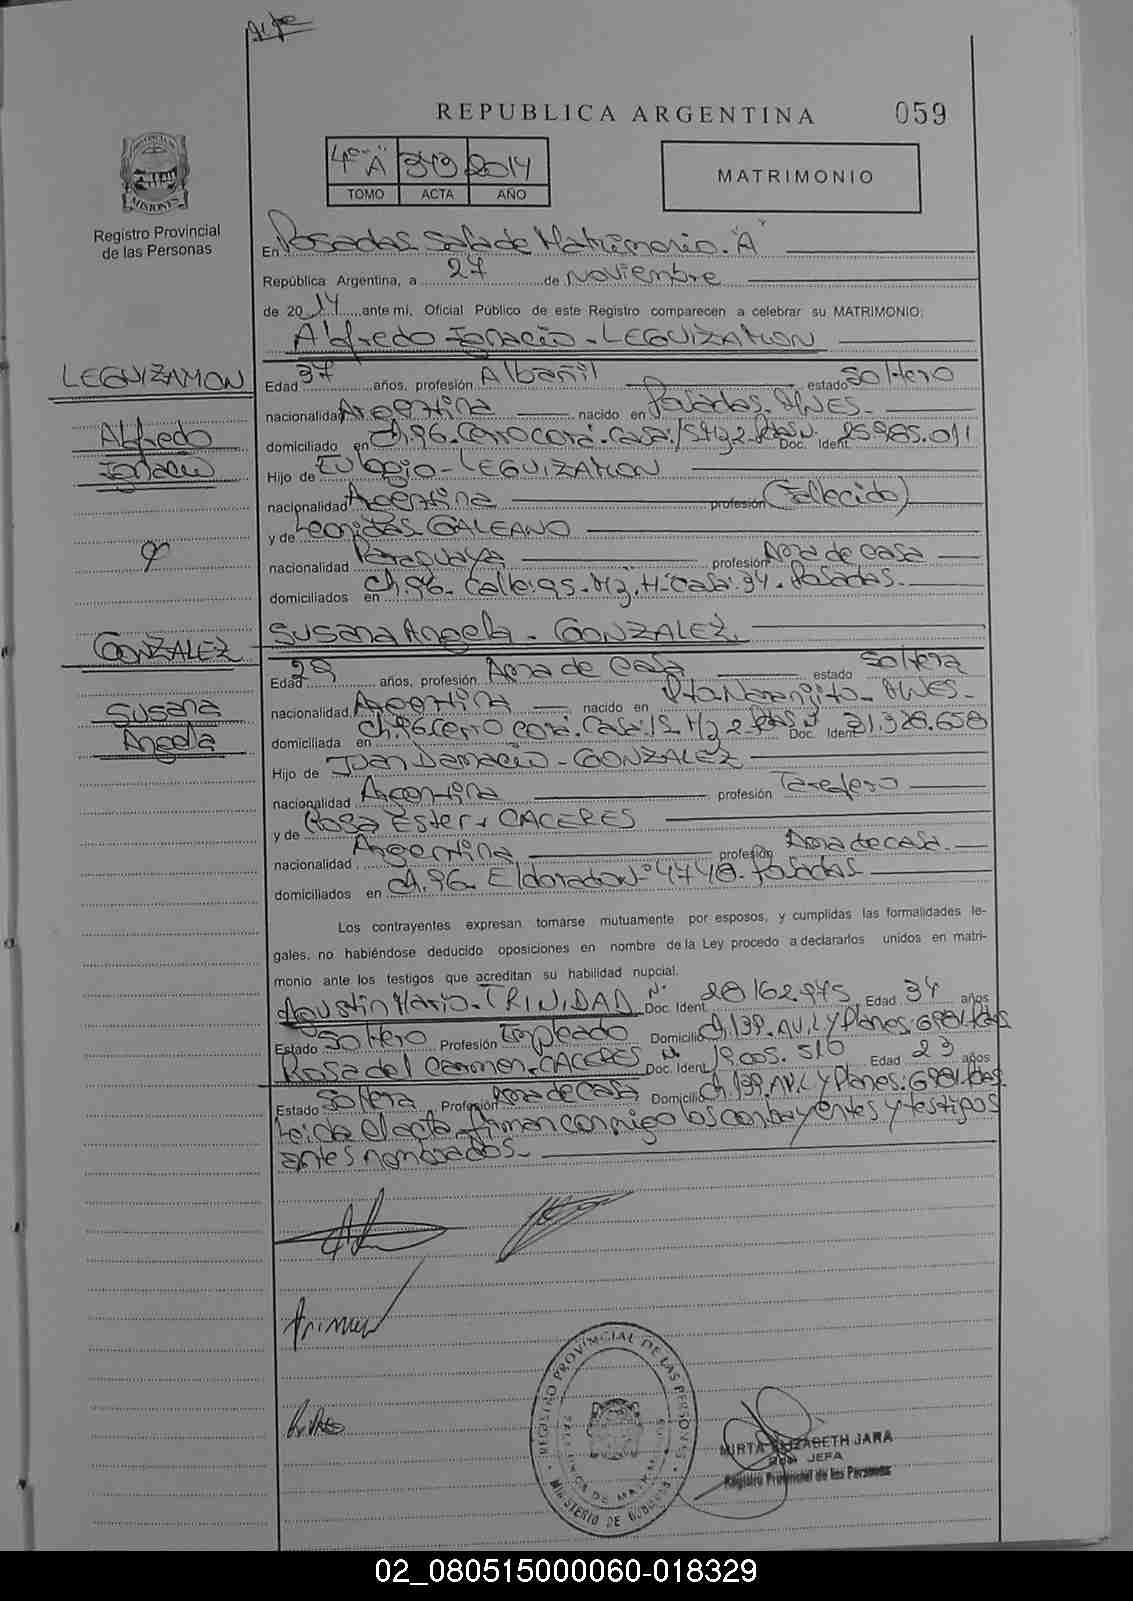 REPUBLICA ARGENTINA 059
4º "A" 349 2014
TOMO ACTA AÑO
MATRIMONIO
PROVINCIA DE MISIONES
Registro Provincial
de las Personas
En Posadas Sala de Matrimonio "A"
República Argentina, a 27 de noviembre
de 2014 ante mi, Oficial Público de este Registro comparecen a celebrar su MATRIMONIO:
Alfredo Ignacio - LEGUIZAMON
LEGUIZAMON
Alfredo
Ignacio
Edad 37 años, profesión Albañil estado Soltero
nacionalidad Argentina nacido en Posadas. MNES.
domiciliado en Ch. 96. Cerro Corá. Casa: Mz 2. Pdas Nº Doc. Ident 25.985.011
Hijo de Eulogio - LEGUIZAMON
nacionalidad Argentina profesión (fallecido)
y de Leonidas GALEANO
nacionalidad Paraguaya profesión Ama de casa
domiciliados en Ch. 96. Calle. 95. Mz. H. Casa. 34. Posadas.
Susana Angela - GONZALEZ.
GONZALEZ
Susana
Angela
Edad 29 años, profesión Ama de casa estado Soltera
nacionalidad Argentina nacido en Pto Naranjito - MNES -
domiciliada en Ch. 96 Cerro Corá. Casa: Mz 2. Pdas Nº Doc. Ident 31.328.658
Hijo de Juan Damacio - GONZALEZ
nacionalidad Argentina profesión Tarefero
y de Rosa Ester - CACERES
nacionalidad Argentina profesión Ama de casa.
domiciliados en Ch. 96. Eldorado Nº 4748. Posadas.
Los contrayentes expresan tomarse mutuamente por esposos, y cumplidas las formalidades le-
gales, no habiéndose deducido oposiciones en nombre de la Ley procedo a declararlos unidos en matri-
monio ante los testigos que acreditan su habilidad nupcial.
Agustin Mario - TRINIDAD Nº Doc Ident 28.162.975 Edad 34 años
Estado Soltero Profesión Empleado Domicilio Ch. 139. AV. L y Planes. 6981. Pdas
Rosa del Carmen - CACERES Nº Doc. Ident 19.005.510 Edad 23 años
Estado Soltera Profesión Ama de casa Domicilio Ch. 139. AV. L y Planes. 6981. Pdas.
Leida el acta, firman conmigo los contrayentes y testigos
antes nombrados.-
REGISTRO PROVINCIAL DE LAS PERSONAS
MINISTERIO DE GOBIERNO
MIRTA ELIZABETH JARA
JEFA
Registro Provincial de las Personas
02_080515000060-018329